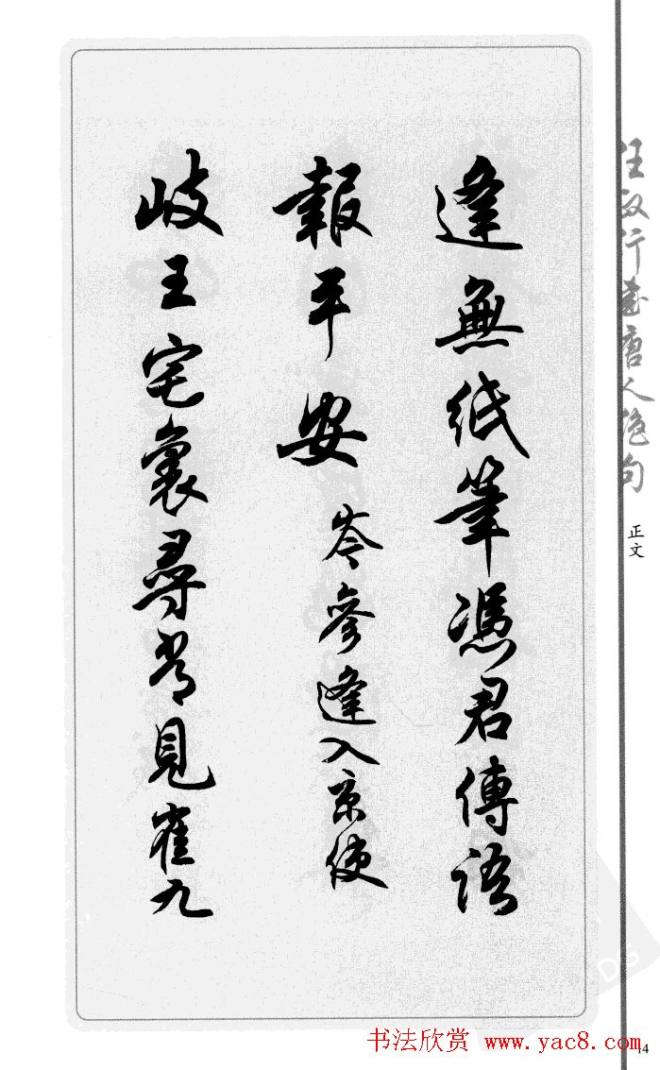 逢無紙筆憑君傳語
報平安 岑參逢入京使
岐王宅裏尋常見崔九
任政行書唐人絕句
正文
书法欣赏 www.yac8.com
14